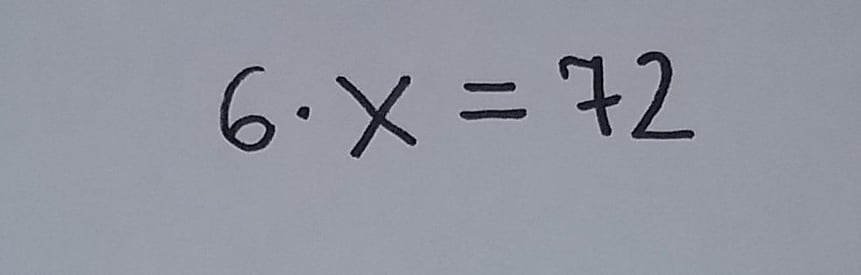 6 · x = 72